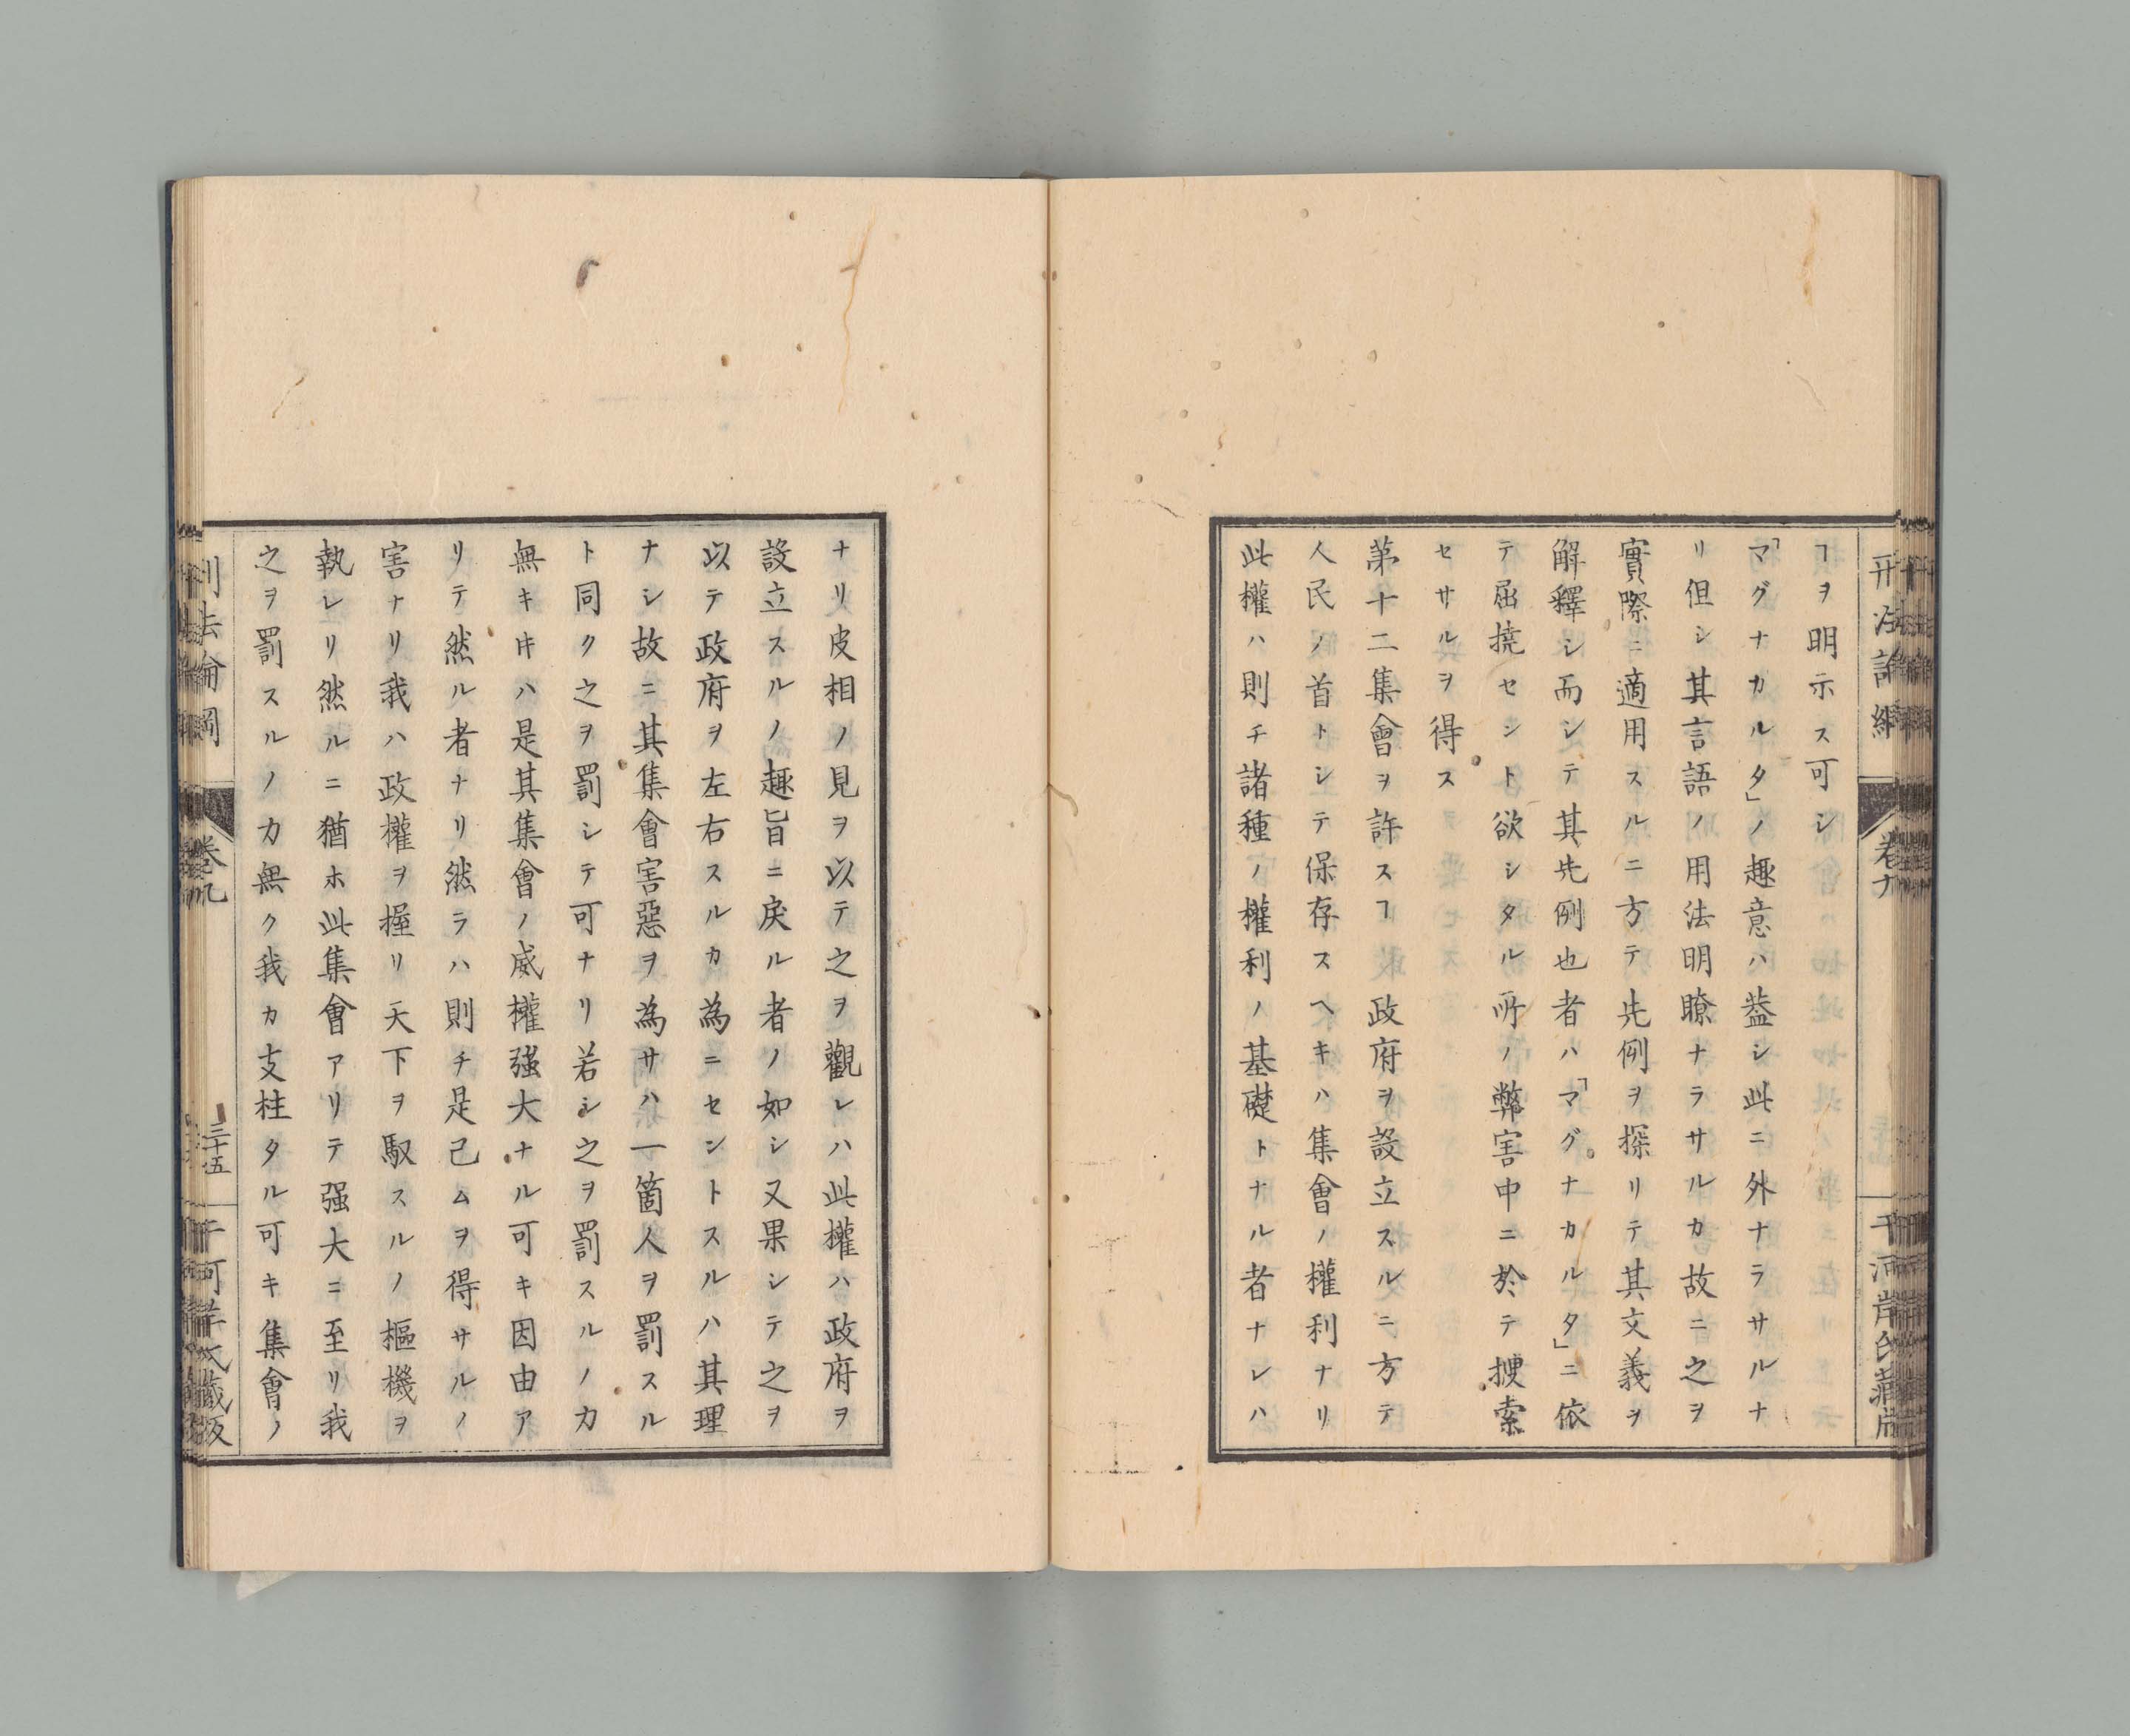 ヿヲ明示ス可シ
「マグナカルタ」ノ趣意ハ葢シ此ニ外ナラサルナ
リ但シ其言語ノ用法明瞭ナラサルカ故ニ之ヲ
實際ニ適用スルニ方テ先例ヲ探リテ其文義ヲ
解釋シ而シテ其先例也者ハ「マグナカルタ」ニ依
テ屈撓セント欲シタル所ノ弊害中ニ於テ捜索
セサルヲ得ス
第十二集會ヲ許スヿ 政府ヲ設立スルニ方テ
人民ノ首トシテ保存スヘキハ集會ノ權利ナリ
此權ハ則チ諸種ノ權利ノ基礎トナル者ナレハ
ナリ皮相ノ見ヲ以テ之ヲ觀レハ此權ハ政府ヲ
設立スルノ趣旨ニ戻ル者ノ如シ又果シテ之ヲ
以テ政府ヲ左右スルカ為ニセントスルハ其理
ナシ故ニ其集會害惡ヲ為サハ一箇人ヲ罰スル
ト同ク之ヲ罰シテ可ナリ若シ之ヲ罰スルノ力
無キ𪜈ハ是其集會ノ威權强大ナル可キ因由ア
リテ然ル者ナリ然ラハ則チ是己ムヲ得サルノ
害ナリ我ハ政權ヲ握リ天下ヲ馭スルノ樞機ヲ
執レリ然ルニ猶ホ此集會アリテ强大ニ至リ我
之ヲ罰スルノ力無ク我カ支柱タル可キ集會ノ
卷九
三十五